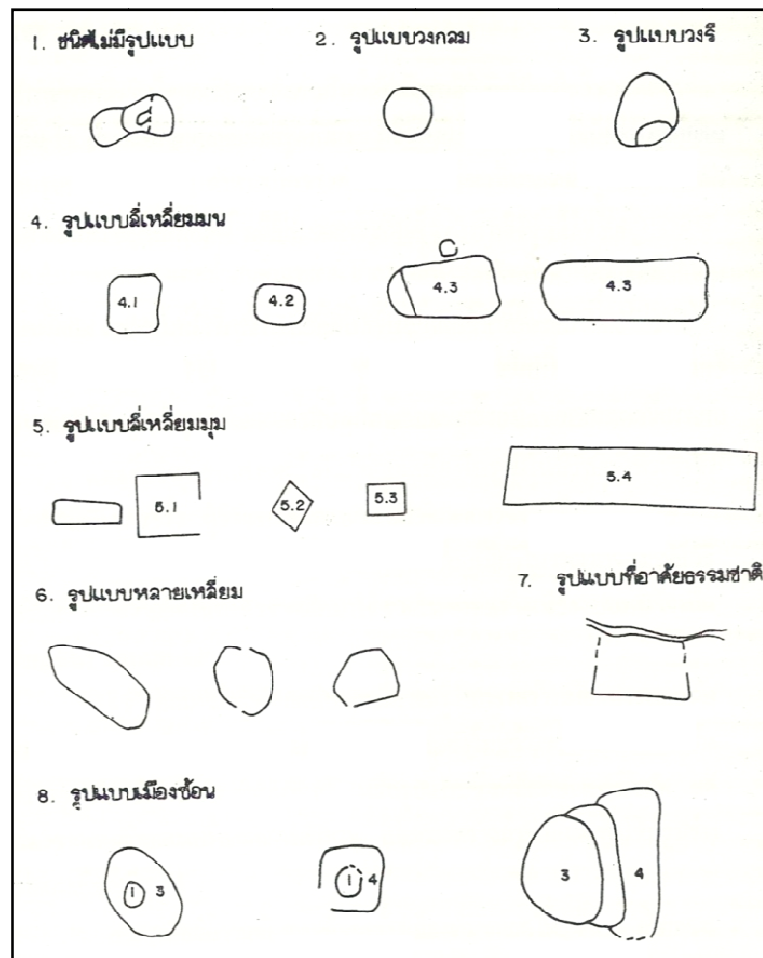 1. ชนิดไม่มีรูปแบบ 2. รูปแบบวงกลม 3. รูปแบบวงรี
4. รูปแบบสี่เหลี่ยมมน
4.1 4.2 4.3 4.3
5. รูปแบบสี่เหลี่ยมมุม
5.1 5.2 5.3 5.4
6. รูปแบบหลายเหลี่ยม 7. รูปแบบที่อาศัยธรรมชาติ
8. รูปแบบเมืองซ้อน
1 3 1 4 3 4